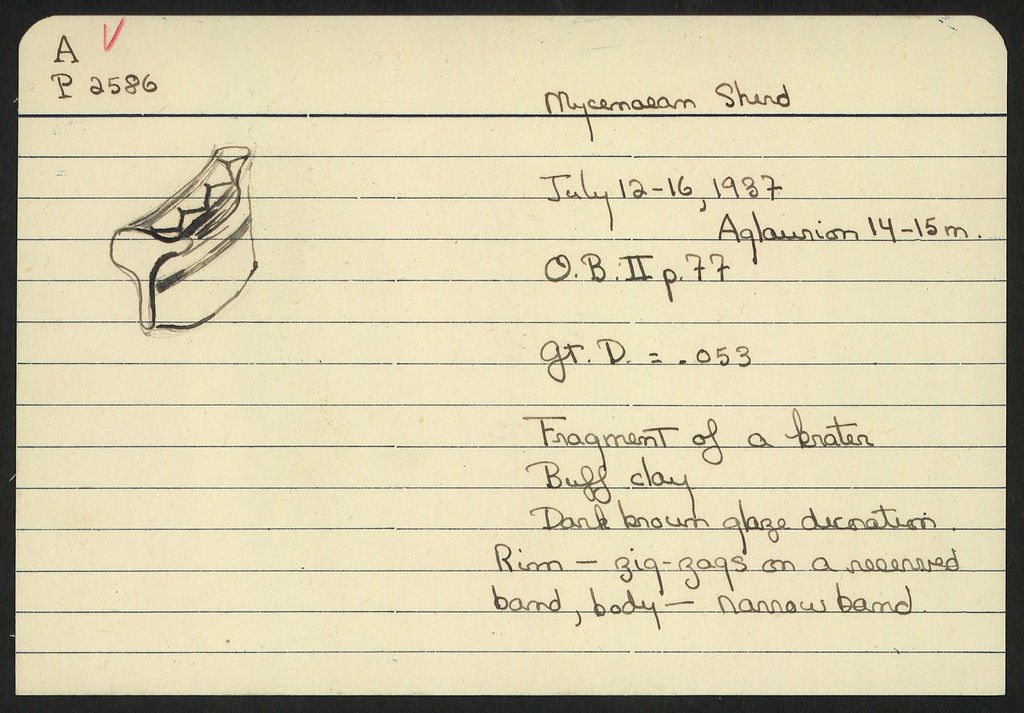 A
P 2586
Mycenaean Sherd
July 12-16, 1937
Aglaurion 14-15 m.
O.B. II p. 77
gt. D. = .053
Fragment of a krater
Buff clay
Dark brown glaze decoration.
Rim — zig-zags on a reserved
band, body — narrow band.